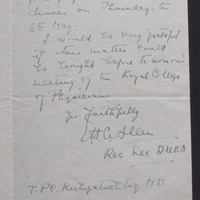 dinner on Thursday, the
6th May.
I would be very grateful
if this matter could
be brought before tomorrow's
meeting of the Royal College
of Physicians
Yrs faithfully
Allen
Rec Sec DUBA
T.P.C. Kirkpatrick Esq. MD